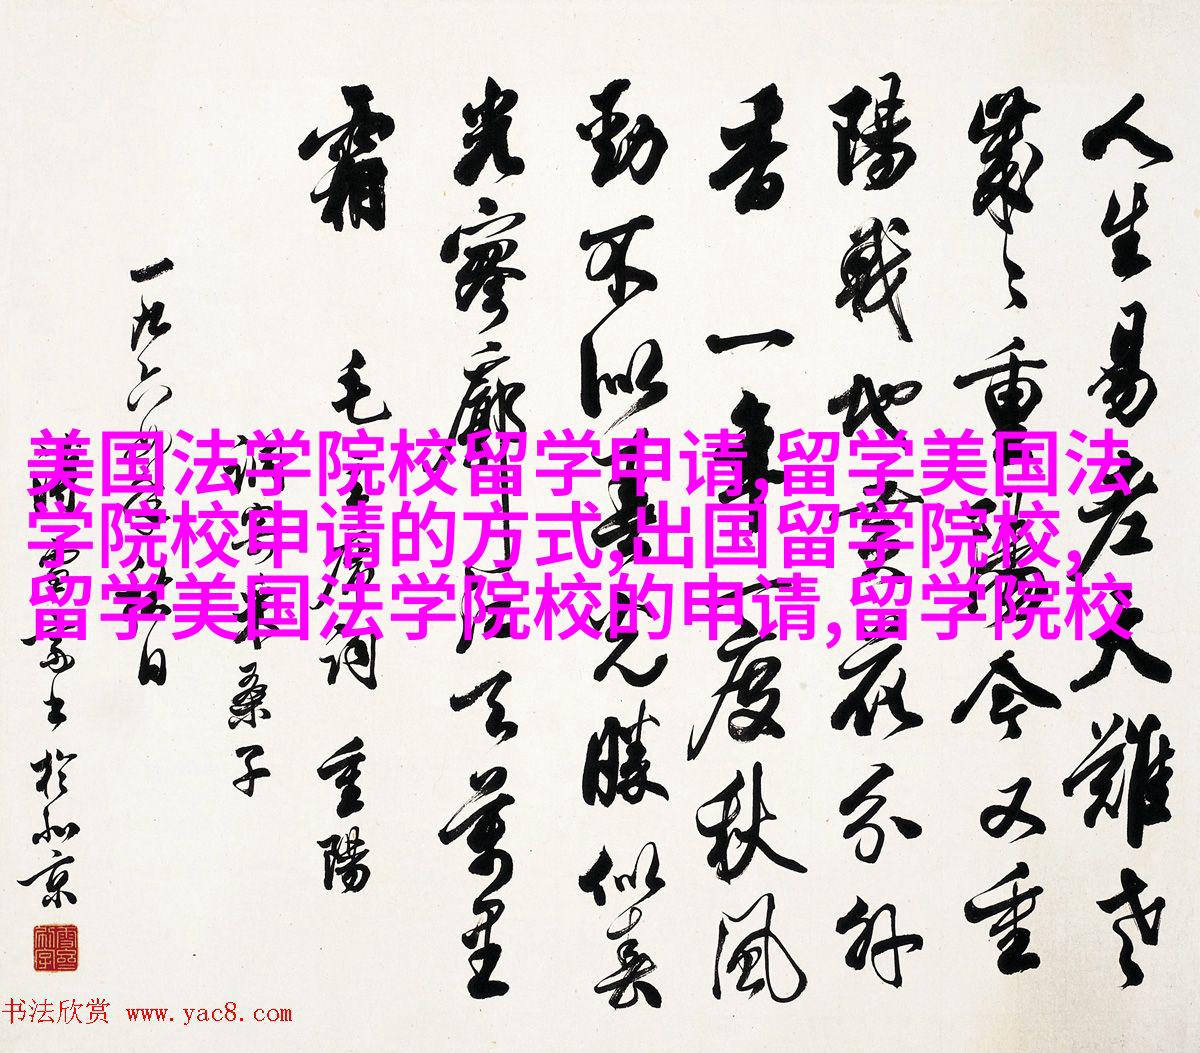 人生易老天難老
歲々重陽今又重
陽戰地黃花分外
香 一年一度秋風
勁不似春光勝似春
光寥廓江天萬里
霜 毛主席詞 重陽
桑子
一九六四年秋日
書於北京
美国法学院校留学申请,留学美国法
学院校申请的方式,出国留学院校,
留学美国法学院校的申请,留学院校
书法欣赏 www.yac8.com